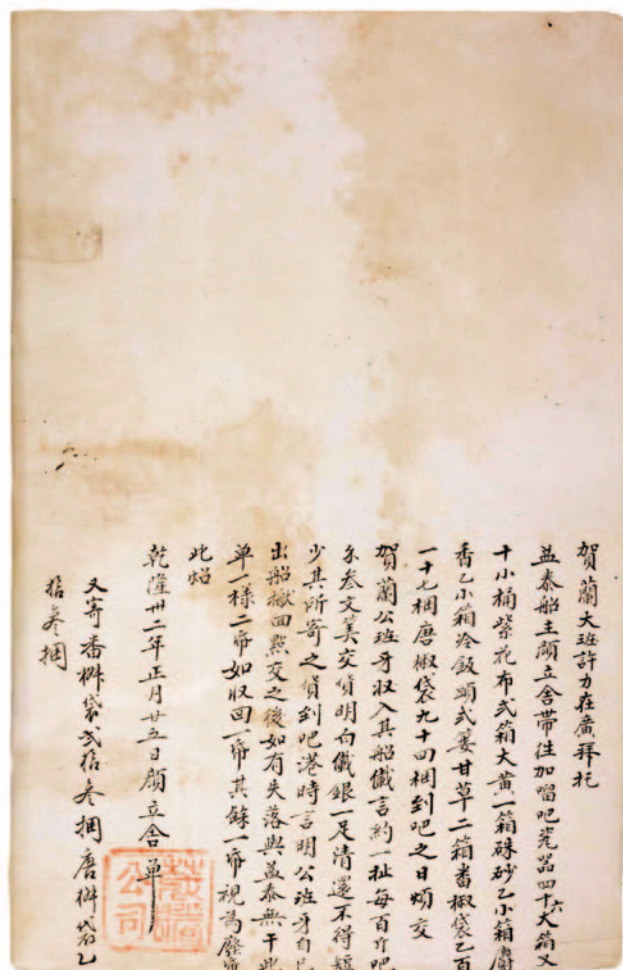 賀蘭大班許力在廣拜托
益泰船主顏立舍帶往加嚼吧瓷器四十六大箱又
十小桶紫花布弍箱大黃一箱硃砂乙小箱麝
香乙小箱冷飯頭弍簍甘草二箱番椒袋乙百
一十七梱唐椒袋九十四梱到吧之日煩交
賀蘭公班牙收入其船儎言約一扯每百斤吧
尒叁文筭交貨明白儎銀一足清還不得短
少其所寄之貨到吧港時言明公班牙自己
出船艍回點交之後如有失落與益泰無干此
单一樣二帋如收回一帋其餘一帋視為廢帋
此炤
乾隆卅二年正月廿五日顏立舍单
又寄番椒袋弍拾叁梱唐椒袋乙
拾叁梱
公司